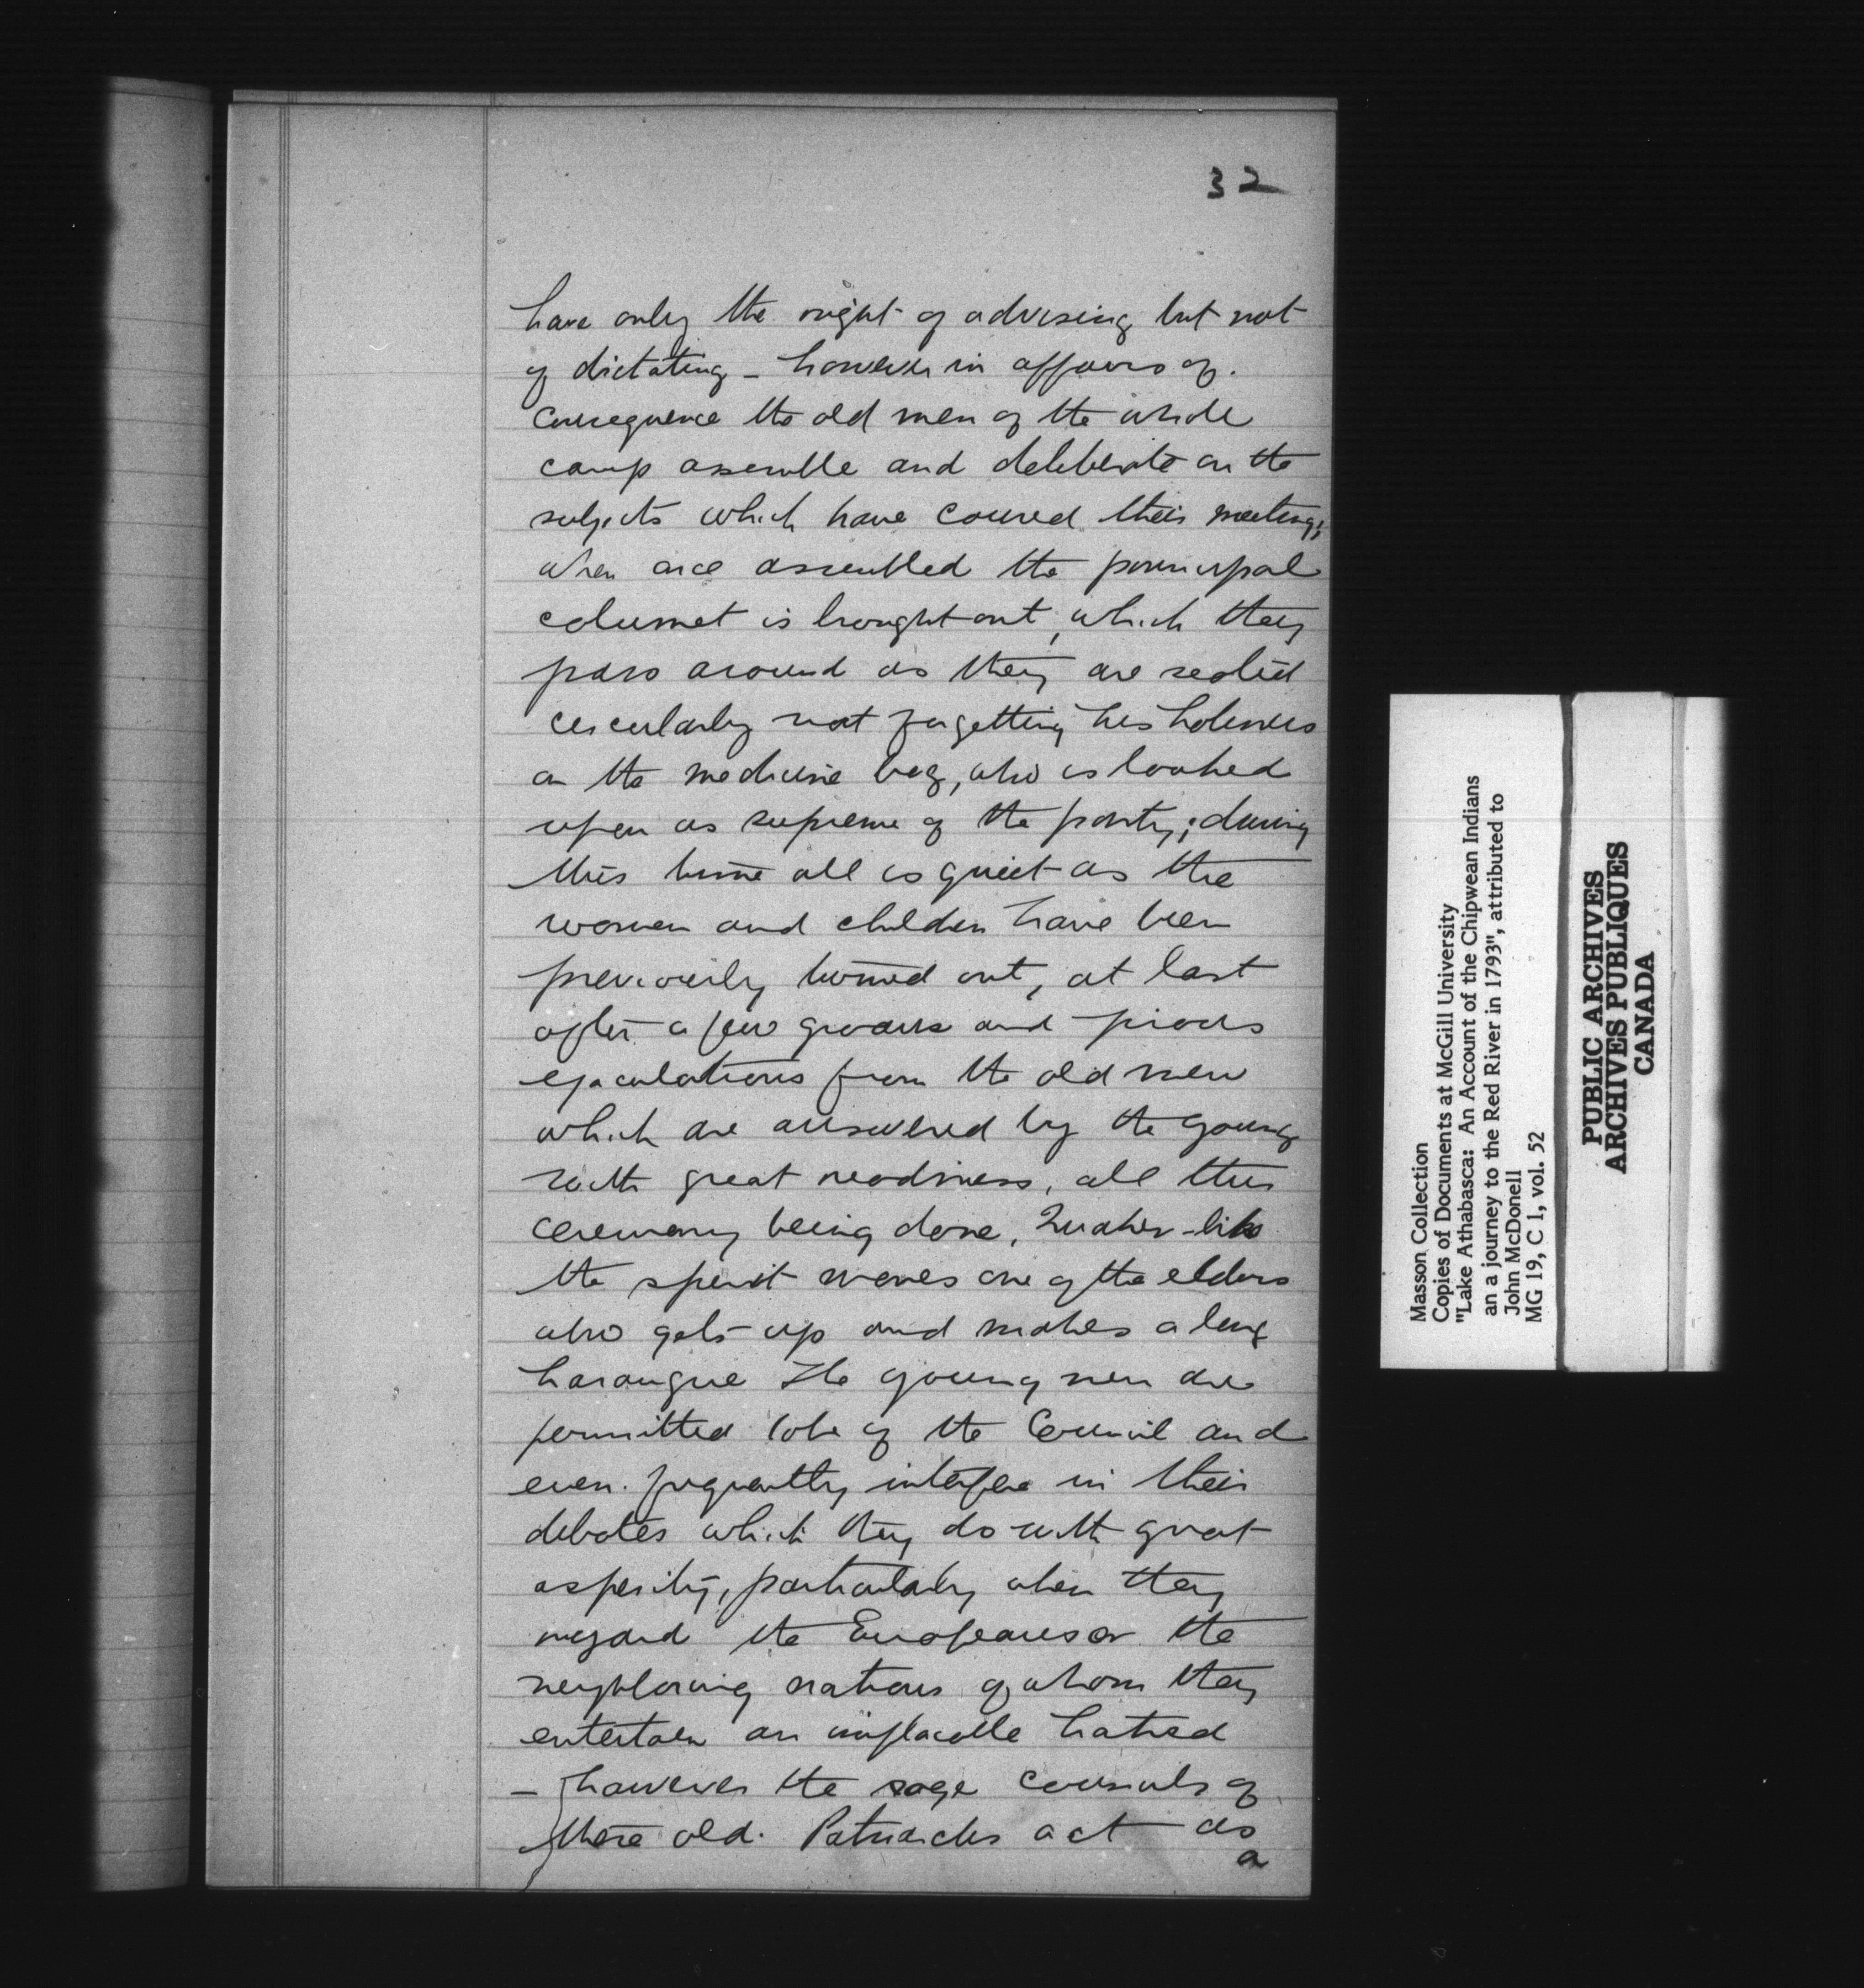 32
have only the right of advising but not
of dictating - however in affairs of
consequence the old men of the whole
camp assemble and deliberate on the
subjects which have coused their meeting;
when once assembled the principal
calumet is brought out, which they
pass around as they are seated
circularly not forgetting his holiness
on the medicine bag, who is looked
upon as supreme of the party; during
this time all is quiet as the
women and children have been
previously turned out, at last
after a few groans and pious
ejaculations from the old men
which are answered by the young
with great readiness, all this
ceremony being done, Quaker-like
the spirit moves one of the elders
who gets up and makes a long
harangue The young men are
permitted to be of the Council and
even frequently interfere in their
debates which they do with great
asperity, particularly when they
regard the Europeans or the
neighboring nations of whom they
entertain an implacable hatred
- however the sage counsels of
these old Patriarchs act as
a
Masson Collection
Copies of Documents at McGill University
"Lake Athabasca: An Account of the Chipwean Indians
an a journey to the Red River in 1793", attributed to
John McDonell
MG 19, C 1, vol. 52
PUBLIC ARCHIVES
ARCHIVES PUBLIQUES
CANADA